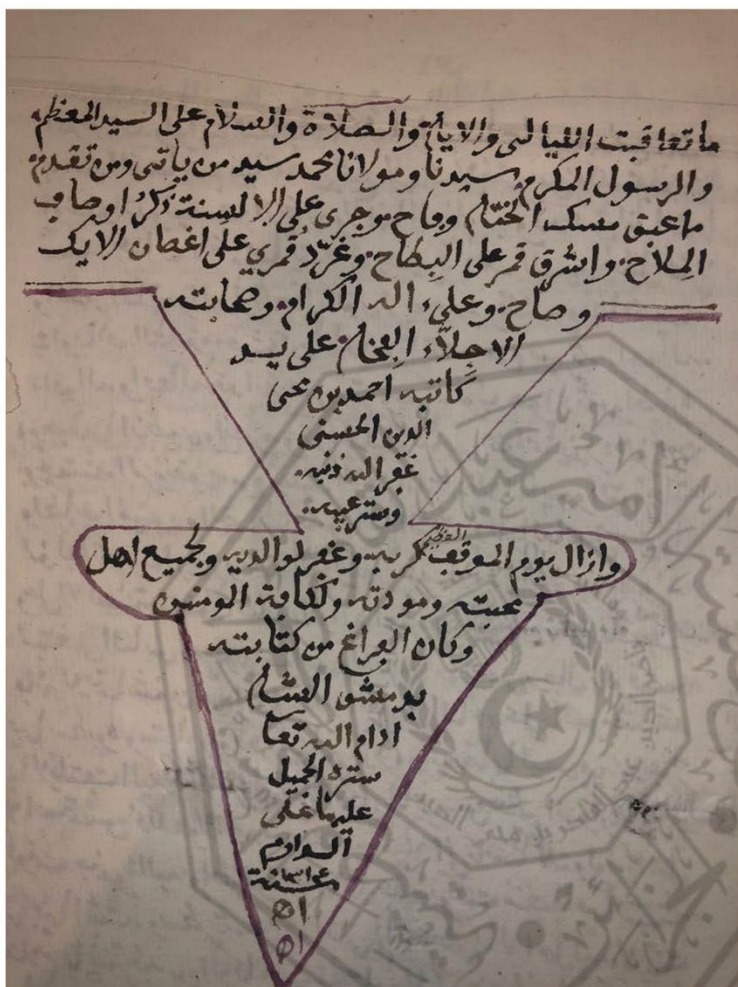 ما تعاقبت الليالي والايام والصلاة والسلام على السيد المعظم
والرسول المكرم سيدنا ومولانا محمد سيد من ياتي ومن تقدم
ما عبق مسك الختام وفاح وجرى على الالسنة ذكر اوصاف
الملاح. واشرق قمر على البطاح. وغرّد قمري على اغصان الايك
وصاح. وعلى ءاله الكرام. وصحابته
الاجلّاء الفخام على يد
كاتبه احمد بن محى
الدين الحسني
غفر الله ذنبه.
وستر عيبه.
وازال يوم الموقف العظيم كربه وغفر لوالديه ولجميع اهل
محبته ومودته ولكافة المومنين
وكان الفراغ من كتابته
بدمشق الشام
ادام الله تعا
ستره الجميل
علينا على
الدوام
سنة
اه
اه